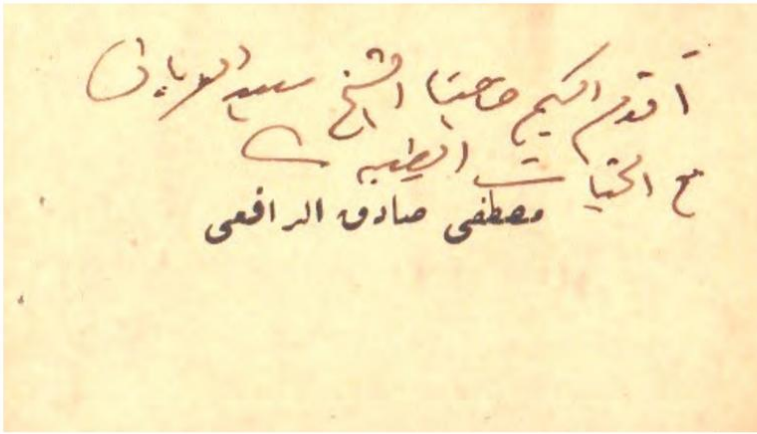 أقدم إليكم صاحبنا الشيخ سعيد العريان
مع التحيات الطيبة
مصطفى صادق الرافعى